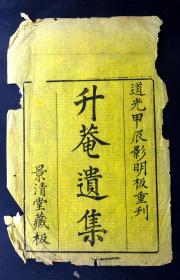 道光甲辰影明板重刊
升菴遺集
景清堂藏板